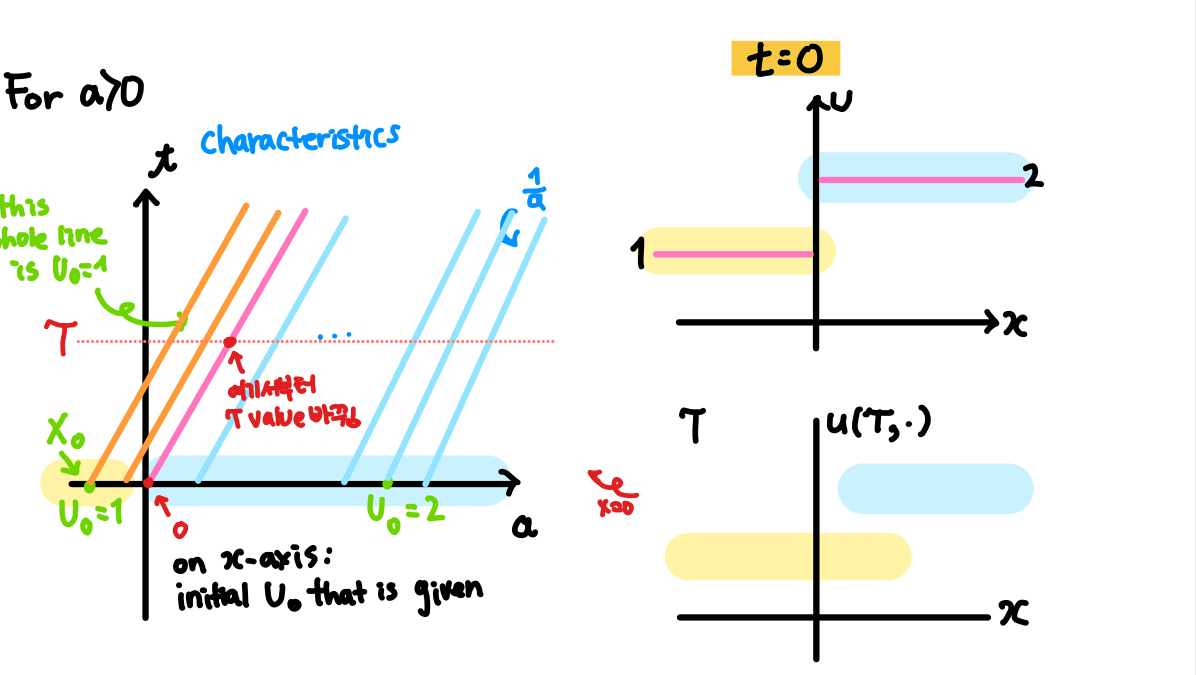 For a>0
characteristics
t
1/a
this
whole line
is U₀=1
T
...
여기서부터
T value 바뀜
X₀
U₀=1
0
U₀=2
a
on x-axis:
initial U₀ that is given
t=0
u
2
1
x
T
u(T,·)
x=0
x